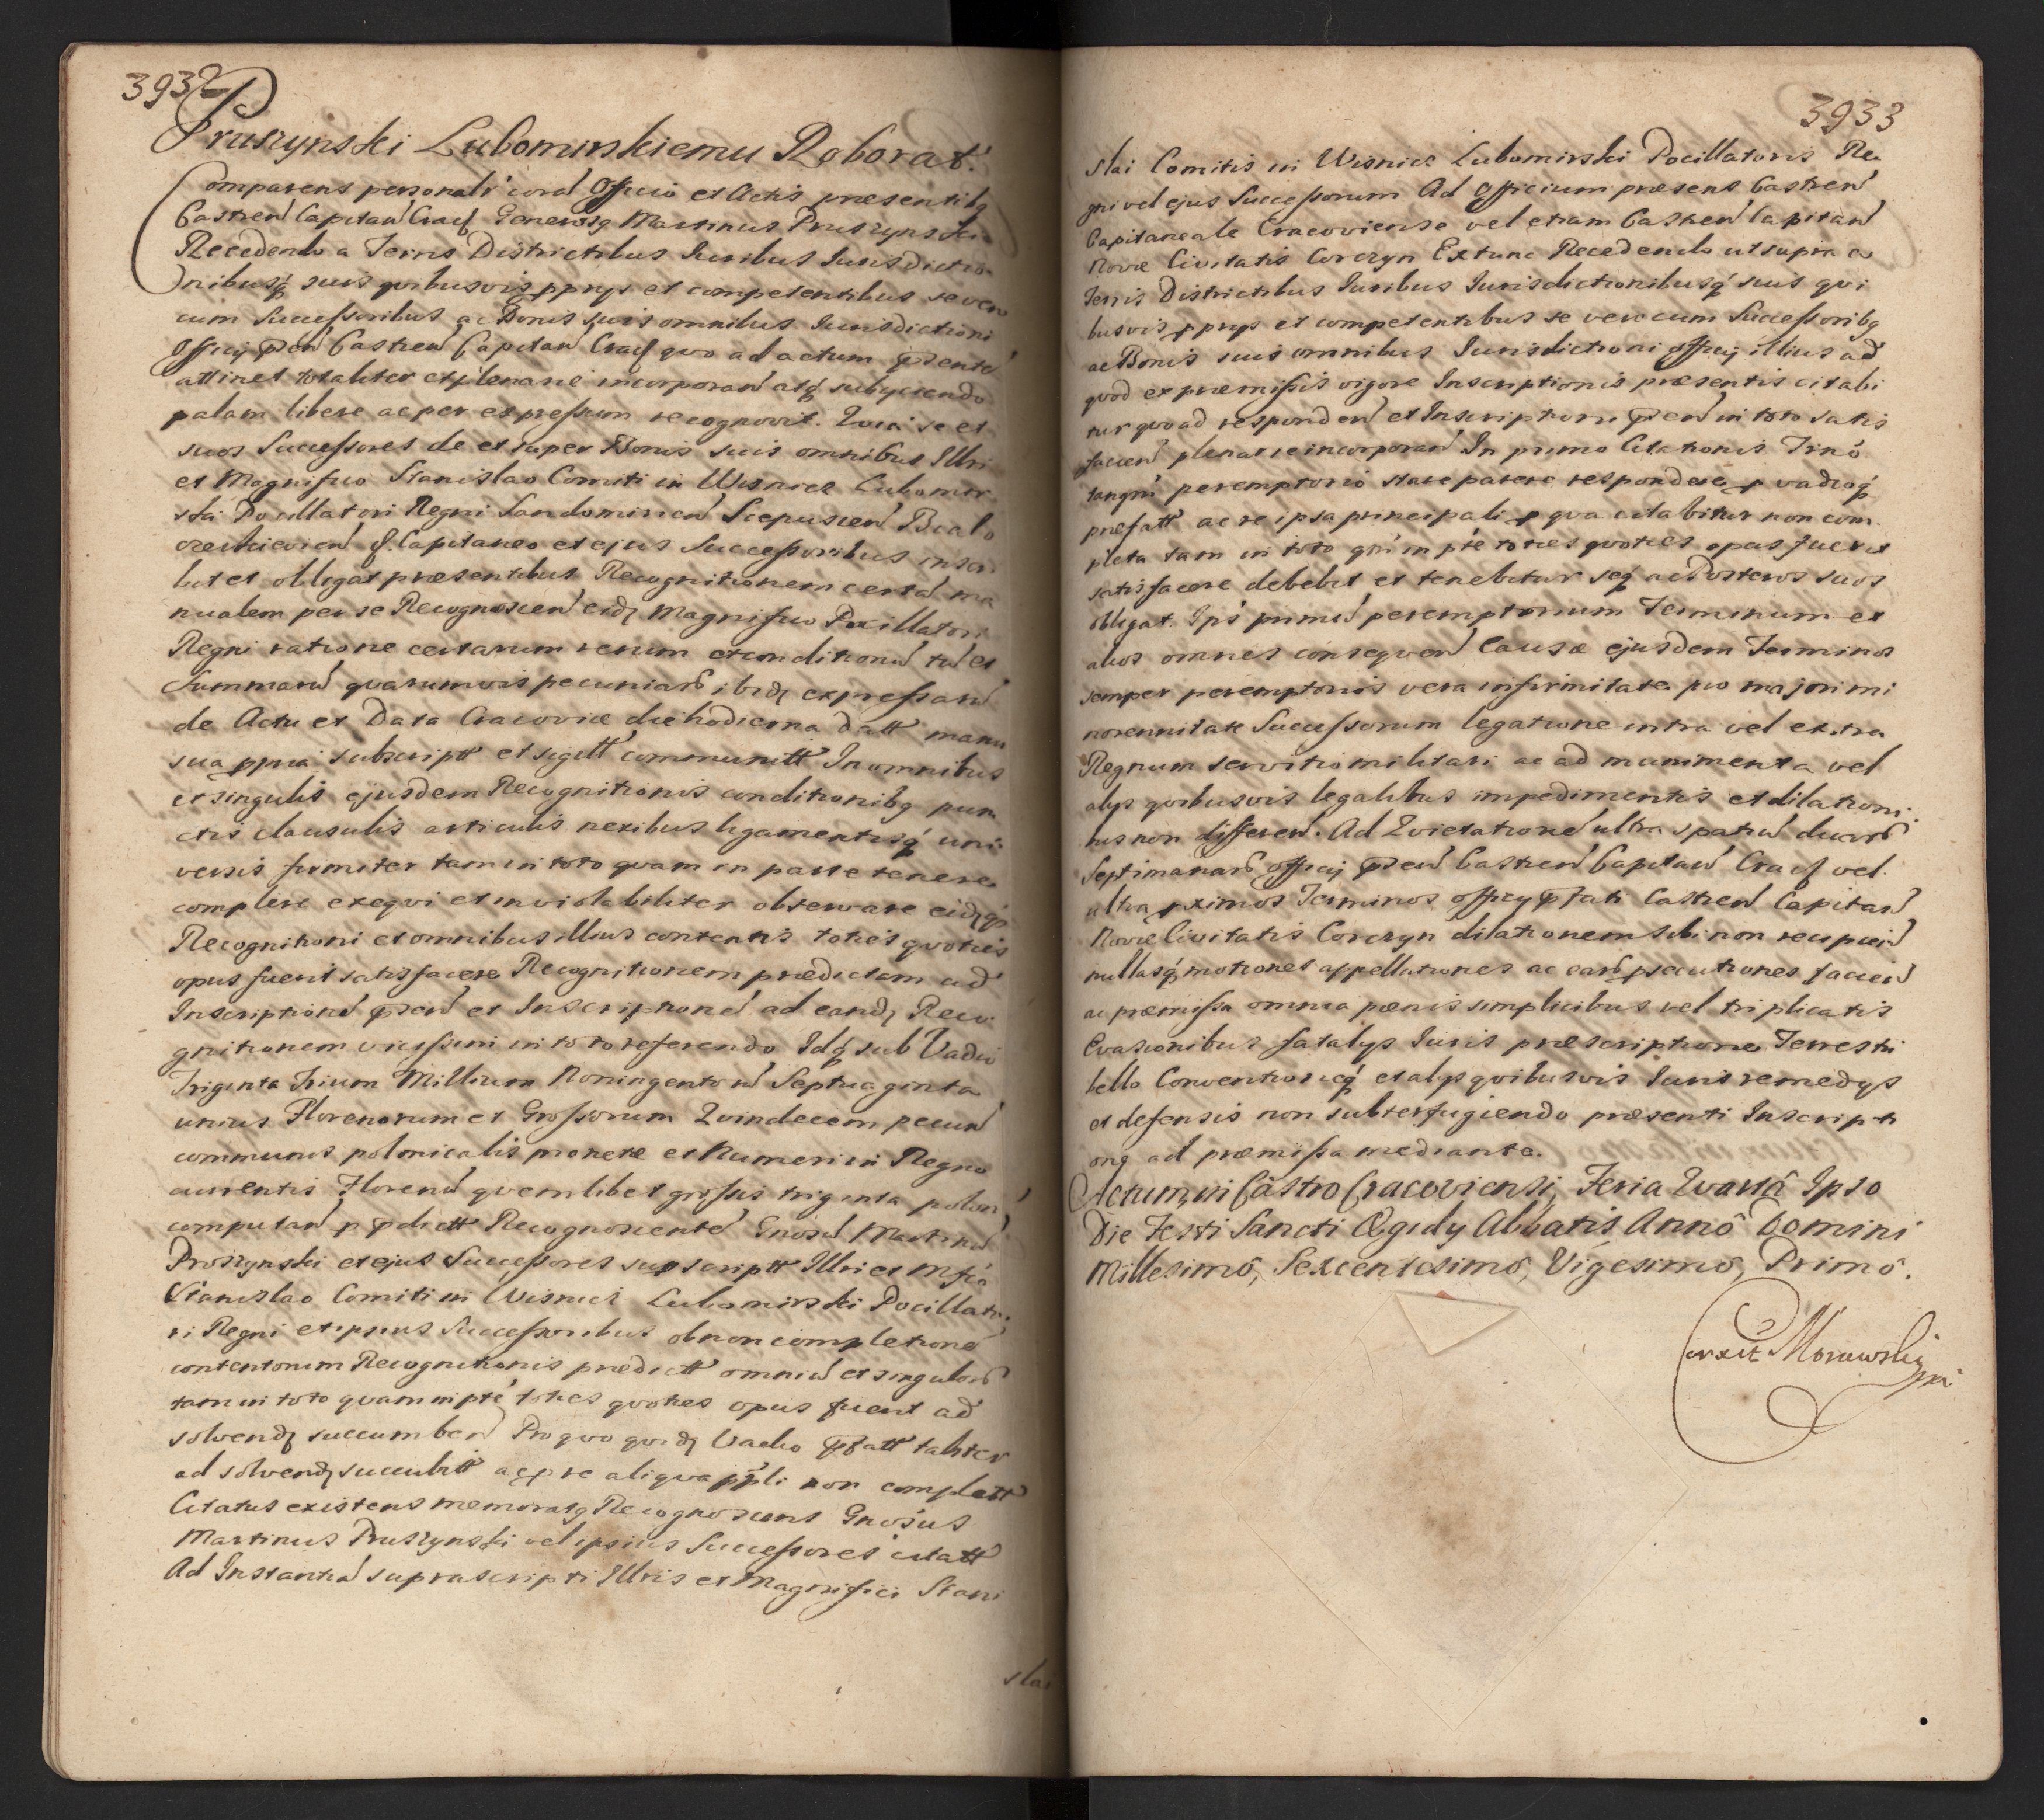 3932
Pruszynski Lubomirskiemu Roborat.
Comparens personalr̃ corã Officio et Actis præsentibq
Castreñ Capitañ Cracq Generosq Martinus Pruszynski
Recedendo a Terris Districtibus Iuribus Iurisdictio
nibusq́ suis qvibusvis pprys et competentibus se vero
cum Successoribus ac Bonis suis omnibus Iurisdictioni
Officij p̃señ Castreñ Capitañ Cracq qvo ad actum p̃sentẽ
attinet totaliter et plenarie incorporañ atq́ subyciendo
palam libere ac per expressum recognovit. Qvia se et
suos Successores de et super Bonis suis omnibus Illri
et Magnifico Stanislao Comiti in Wisnicz Lubomir
ski Pocillatori Regni Sandomirieñ Scepusieñ Bialo
cerkieviceñ q. Capitaneo et ejus Successoribus inscri
bit et obligat præsentibus Recognitionem certã ma
nualem per se Recognosceñ eidȝ Magnifico Pocillatori
Regni ratione certarum rerum et conditionũ tũ et
Summarũ qvarumvis pecuniarũ ibidȝ expressarũ
de Actu et Data Cracoviæ die hodierna datt manu
sua ppria subscriptt et sigill communitt In omnibus
et singulis ejusdem Recognitionis conditionibq pun
ctis clausulis articulis nexibus ligamentisq́ uni
versis firmiter tam in toto qvam in parte tenere
complere exeqvi et inviolabiliter observare eidȝq́
Recognitioni et omnibus illius contentis toties qvoties
opus fuerit satisfacere Recognitionem prædictam ad
Inscriptionẽ p̃señ et Inscriptionẽ ad eandȝ Reco
gnitionem vicissim in toto referendo Idq́ sub Vadio
Triginta Trium Millium Noningentorũ Septuaginta
unius Florenorum et Grossorum Qvindecem pecuñ
communis polonicalis monetæ et Numeri in Regno
currentis Florenũ qvemlibet grossis triginta poloñ
computañ p p̃dictt Recognoscentẽ Gnosũ Martinũ
Proszynski et ejus Successores suprascriptt Illri et Mfco
Stanislao Comiti in Wisnicz Lubomirski Pocillato
ri Regni et ipsius Successoribus ob non completionẽ
contentorum Recognitionis prædictt omniũ et singulorũ
tam in toto qvam in pte toties qvoties opus fuerit ad
solvendȝ succumbeñ Pro qvo qvidȝ Vadio p̃fatt taliter
ad solvendȝ succubitt ac p re aliqva ppli non complett
Citatus existens memoratq Recognoscens Gnosus
Martinus Pruszynski vel ipsius Successores citatt
Ad Instantiã suprascripti Illris et Magnifici Stani
slai
3933
slai Comitis in Wisnicz Lubomirski Pocillatoris Re
gni vel ejus Successorum Ad Officium præsens Castreñ
Capitaneale Cracoviense vel etiam Castreñ Capitañ
Novæ Civitatis Corczyn Extunc Recedendo ut supra a
Terris Districtibus Iuribus Iurisdictionibusq́ suis qvi
busvis pprys et competentibus se vero cum Successoribq
ac Bonis suis omnibus Iurisdictioni officij illius ad
qvod ex præmissis vigore Inscriptionis præsentis citabi
tur qvo ad respondeñ et Inscriptioni p̃señ in toto satis
facieñ plenarie incorporañ In primo Citationis Tr̃no
tanqm̃ peremptorio stare parere respondere p vadioq́
præfatt ac re ipsa principali p qva citabitur non com
pleta tam in toto qm̃ in pte toties qvoties opus fuerit
satisfacere debebit et tenebitur seq́ ac Posteros suos
obligat. Ips̃ primũ peremptorium Terminum et
alios omnes conseqveñ Causæ ejusdem Terminos
semper peremptorios vera infirmitate pro majori mi
norennitate Successorum legatione intra vel extra
Regnum servitio militari ac ad munimenta vel
alys qvibusvis legalibus impedimentis et dilationi
bus non differeñ. Ad Qvietationẽ ultra spatiũ duarũ
Septimanarũ officij p̃señ Castreñ Capitañ Cracq vel
ultra pximos Terminos officij p̃fati Castreñ Capitañ
Novæ Civitatis Corczyn dilationem sibi non recipieñ
nullasq́ motiones appellationes ac earũ psecutiones facieñ
ac præmissa omnia pænis simplicibus vel triplicatis
Evasionibus fatalys Iuris præscriptione Terrestri
bello Conventioneq́ et alys qvibusvis Iuris remedys
et defensis non subterfugiendo præsenti Inscripti
onẽ ad præmissa mediante.
Actum in Castro Cracoviensi, Feria Qvartâ Ipso
Die Festi Sancti Ægidy Abbatis Annô Domini
Millesimô, Sexcentesimô, Vigesimô, Primô.
Corexit Morawski mp